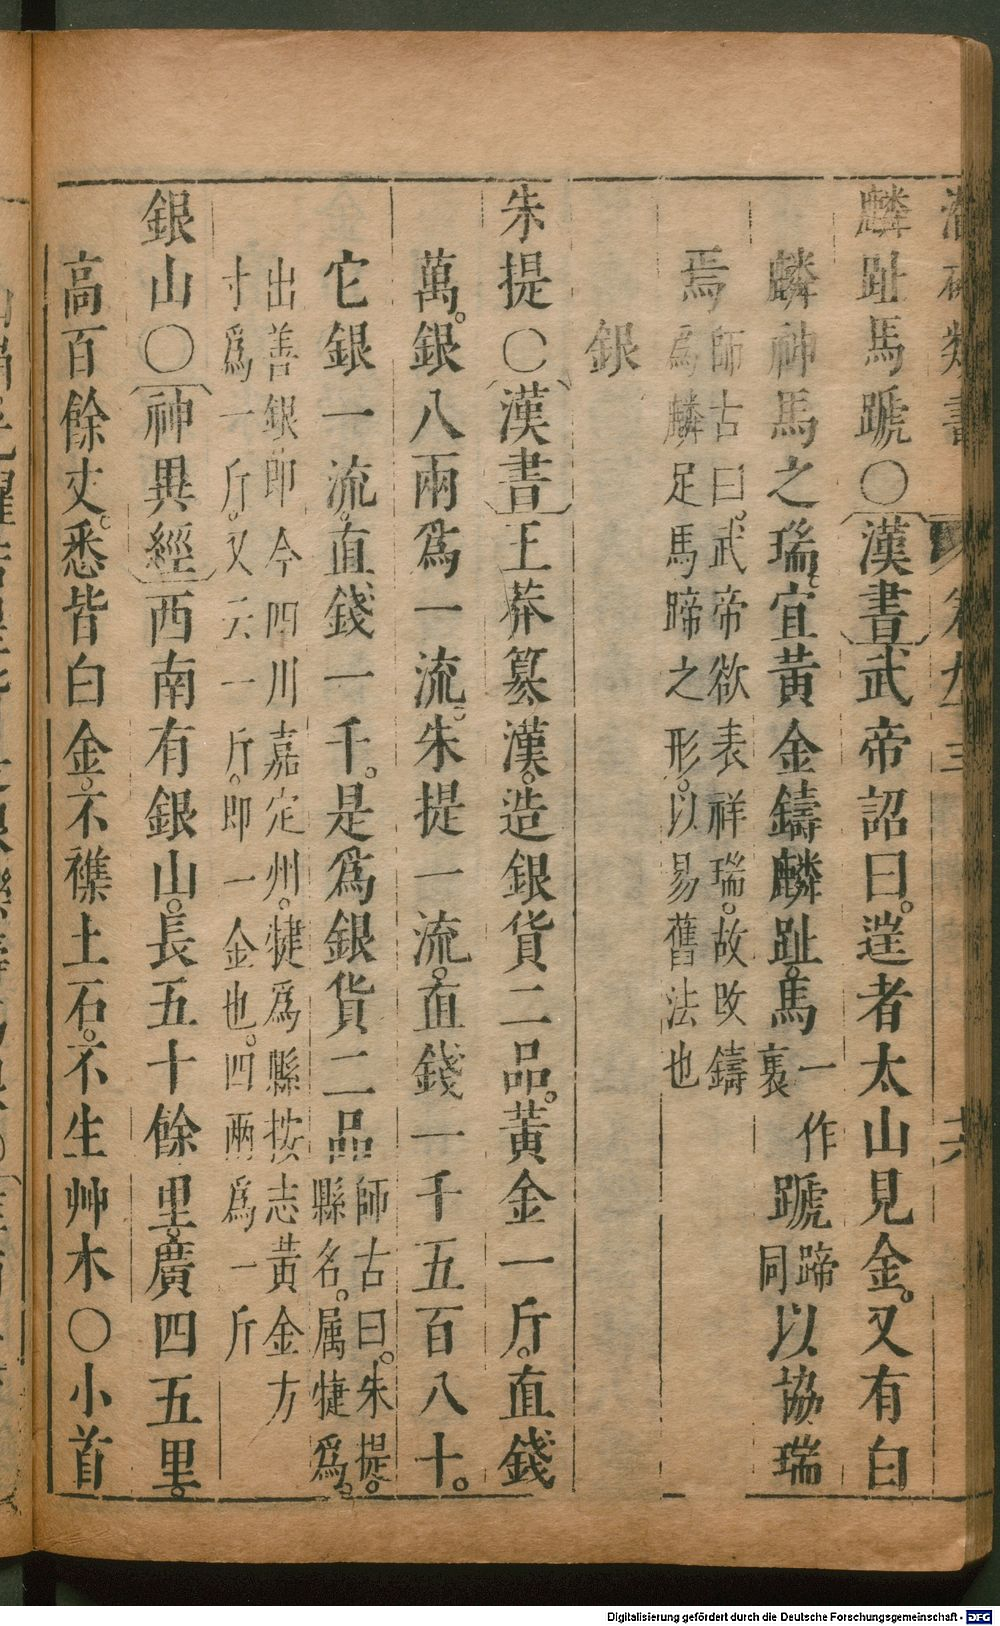 潛確類書 卷九十三 共
麟趾馬蹏〇漢書武帝詔曰。迋者太山見金。又有白
麟神馬之瑞。宜黃金鑄麟趾。馬褭一作蹏蹄同以協瑞
焉師古曰。武帝欲表祥瑞。故改鑄
為麟足馬蹄之形。以易舊法也
銀
朱提〇漢書王莽篡漢。造銀貨二品。黃金一斤。直錢
萬。銀八兩爲一流。朱提一流。直錢一千五百八十。
它銀一流。直錢一千。是爲銀貨二品師古曰。朱提。
縣名。属犍爲。
出善銀。即今四川嘉定州。犍爲縣按志黃金方
寸爲一斤。又云一斤。即一金也。四兩爲一斤
銀山〇神異經西南有銀山。長五十餘里。廣四五里。
高百餘丈。悉皆白金。不襍土石。不生艸木〇小首
Digitalisierung gefördert durch die Deutsche Forschungsgemeinschaft - DFG